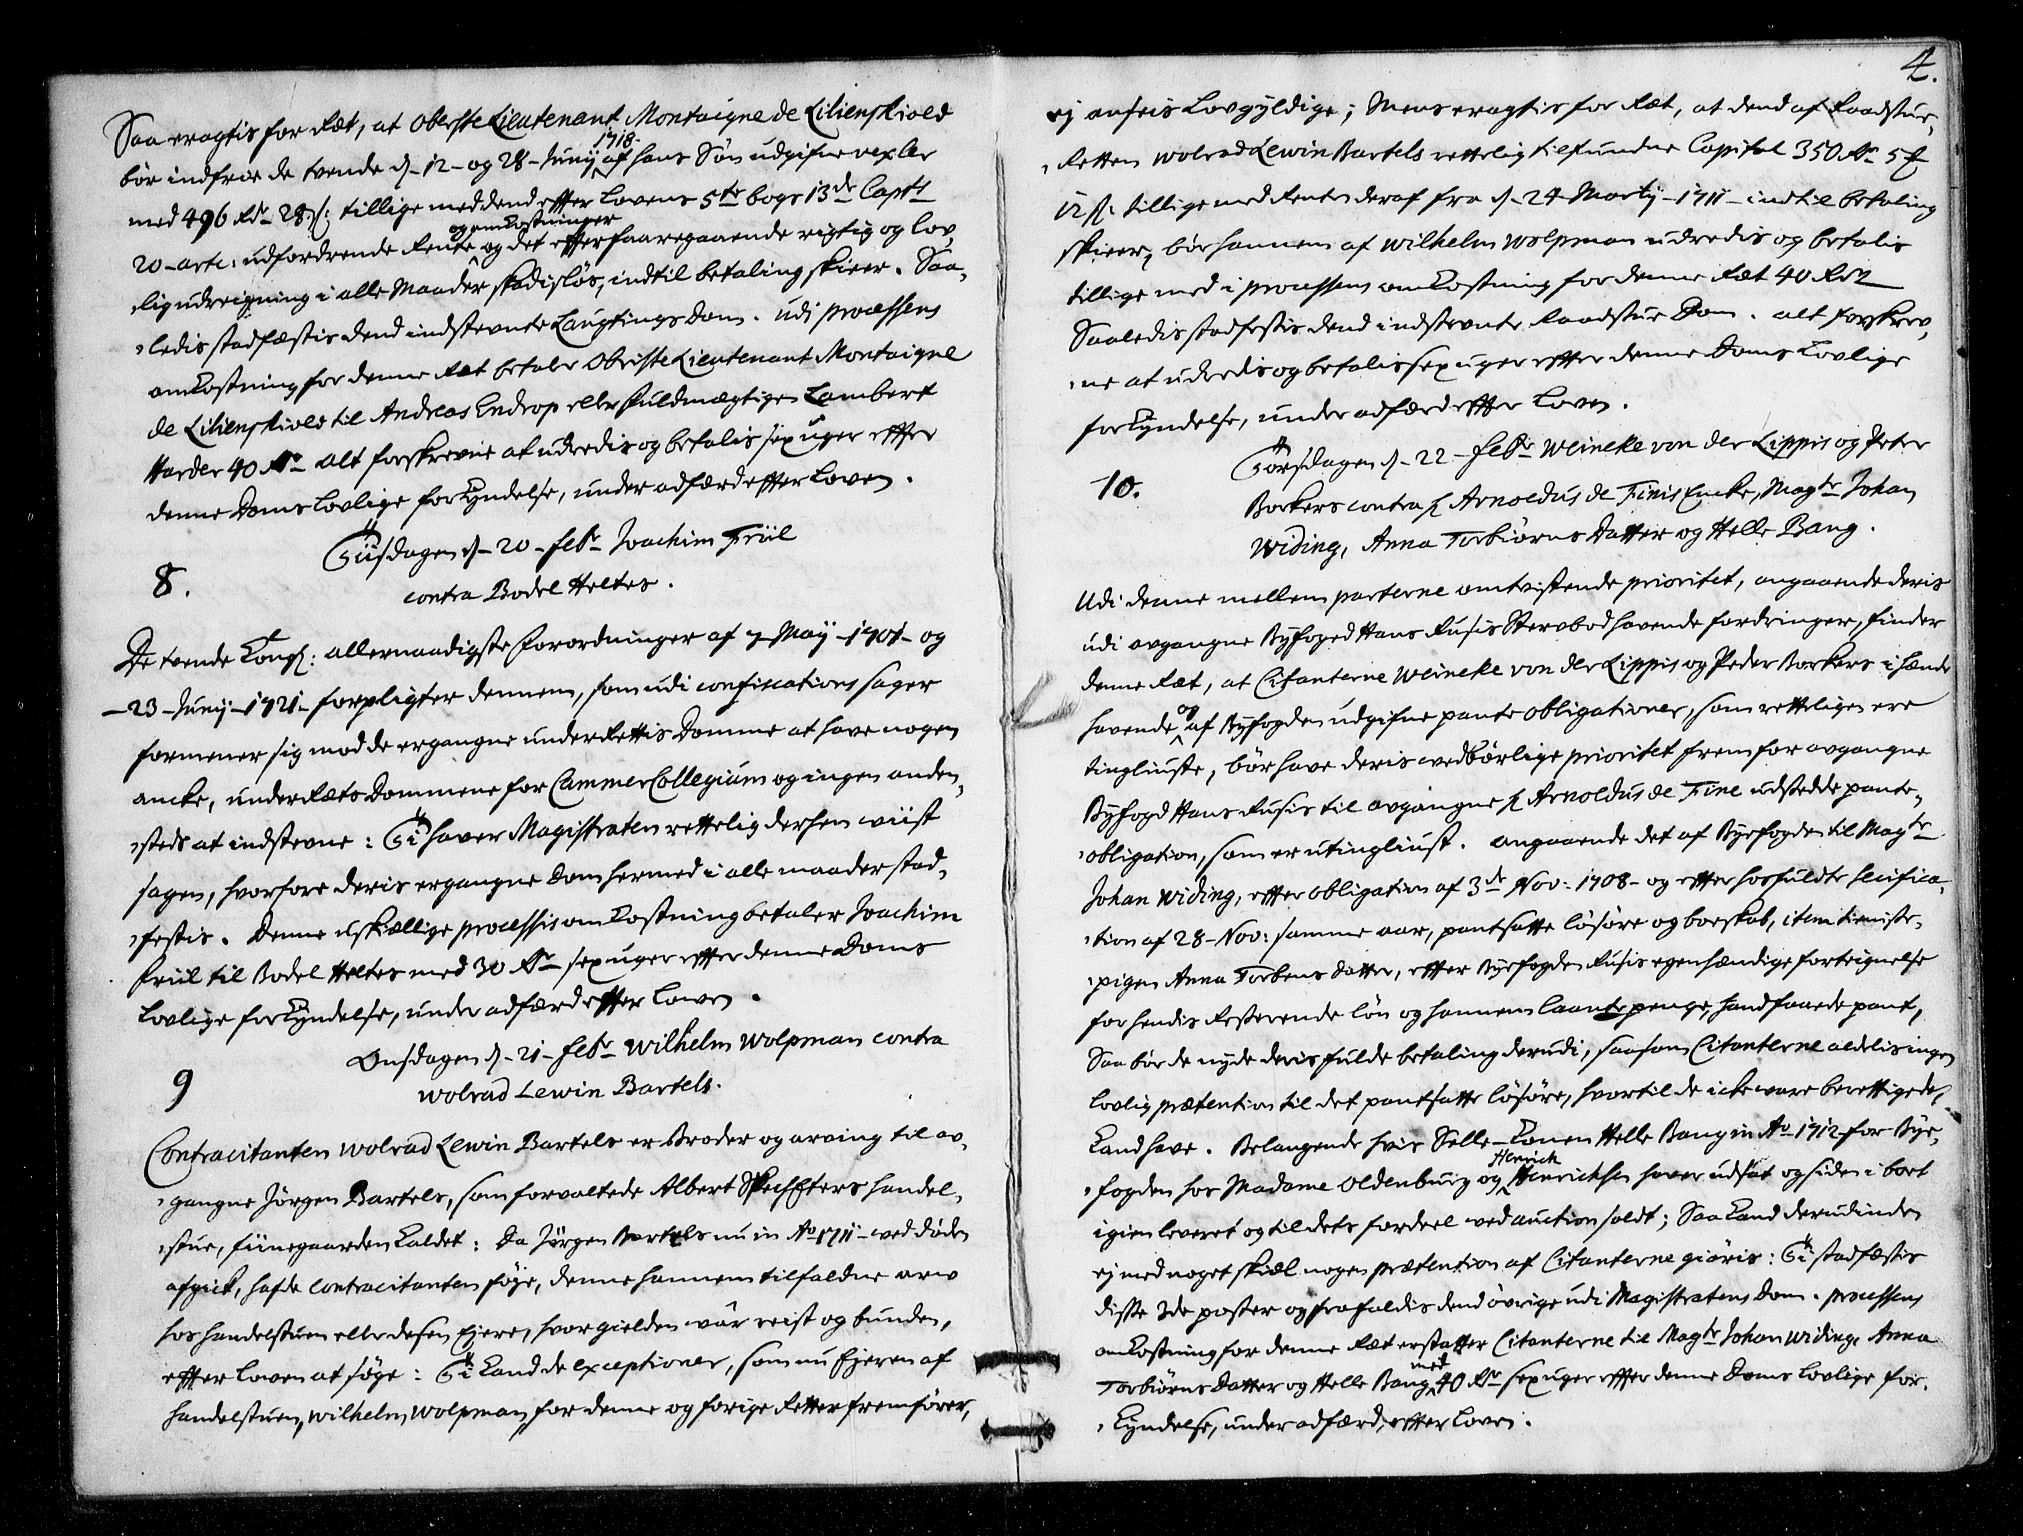 Saa eragtis for Ræt, at Oberste Lieutenant Montaigne de Lilienskiold
bör indfrie de tvende d. 12 og 28 Junij 1718 af hans Sön udgifne vexler
med 496 Rdr 28 s: tillige med dend effter Lovens 5te bogs 13de Capts
20 artc: udfordrende Rente og omkostninger og det effter faaregaaende rigtig og lov,
,lig udreigning i alle Maader skadislös, indtil betaling skier. Saa,
,ledis stadfæstis dend indstevnte Laugtings Dom. udi processens
omkostning for denne Ræt betaler Oberste Lieutenant Montaigne
de Lilienskiold til Andreas Endrop eller fuldmægtigen Lambert
Harder 40 Rdr alt forskrevne at udredis og betalis sex uger effter
denne Doms Lovlige forkyndelse, under adfærd effter Loven.
Tiisdagen d. 20 febr Joachim Friil
8. contra Bodel Heltes.
De tvende Kongl: allernaadigste forordninger af 7 Maÿ 1701 og
23 Junij 1721 forpligter dennem, som udi confiscations sager
formener sig mod de ergangne underRettis Domme at have nogen
ancke, underRæts Dommene for Cammer Collegium og ingen anden,
,steds at indstevne: Ti haver Magistraten rettelig derhen wiist
sagen, hvorfore deris ergangne Dom hermed i alle maader stad,
,festis. Denne uskiellige processis omkostning betaler Joachim
friil til Bodel Heltes med 30 Rdr sex uger effter denne Doms
Lovlige forkyndelse, under adfærd effter Loven.
Onsdagen d. 21 febr Wilhelm Wolpman contra
9 Wolrad Lewin Bartels.
Contracitanten Wolrad Lewin Bartels er Broder og arving til av,
,gangne Jörgen Bartels, som forvaltede Albert Skechters handel,
,stue, fiinegaarden kaldet: Da Jörgen Bartels nu in Ao 1711 ved döden
afgick, hafde contracitanten föye, denne hannem tilfaldne arv
hos handelstuen eller desen Ejere, hvor gielden vár reist og bunden,
effter Loven at söge: Ti kand de exceptioner, som nu Ejeren af
handelstuen, Wilhelm Wolpman, for denne og forige Retter fremförer,
4.
ej ansees Lovgyldige; Mens eragtis for Ræt, at dend af Raadstue,
,Retten Wolrad Lewin Bartels rettelig tilfundne Capital 350 Rdr 5
12 s. tillige med Renten deraf fra d. 24 Martij 1711 indtil betaling
skieer, bör hannem af Wilhelm Wolpman udredis og betalis
tillige med i processens omkostning for denne Ræt 40 Rdr
Saaledis stadfestis dend indstevnte Raadstue Dom. alt forskrev,
,ne at udredis og betalis sex uger effter denne Doms Lovlige
forkyndelse, under adfærd effter Loven.
Torsdagen d. 22 febr Weineke von der Lippis og Peter
10. Borkers contra Arnoldus de Finis Encke, Magtr Johan
Widing, Anna Torbiörns Datter og Helle Bang.
Udi denne mellem parterne omtvistende prioritet, angaaende deris
udi avgangne Byfoged Hans Rusis Sterboe havende fordringer, finder
denne Ræt, at Citanterne Weineke von der Lippis og Peder Borkers i hænde
havende og af Byfogden udgifne pante obligationer, som retteligen ere
tingliuste, bör have deris wedbörlige prioritet frem for avgangne
Byfogd Hans Rusis til avgangne Arnoldus de Fine udstedde pante,
,obligation, som er utingliust. angaaende det af Byefogden til Magtr
Johan Widing, effter obligation af 3de Nov: 1708 og effter hosfuldte specifica,
,tion af 28 Nov: samme aar, pantsatte lösöre og boeskab, item tieniste,
,pigen Anna Torbens datter, effter Byefogden Rusis egenhændige forteignelse
for hendis Resterende lön og hannem laante penge, handfaaede pant,
Saa bör de nyde deris fulde betaling derudi, saasom Citanterne aldelis ingen
Lovlig prætention til det pantsatte lösöre, hvortil de icke ware berettigede,
kand have. Belangende hvis Selle-konen Helle Bang in Ao 1712 for Bye,
,fogden hos Madame Oldenburg og Henrich Henrichsen haver udsat og siden i bort
igien leveret og til dets fordeel ved auction soldt; Saa kand derudinden
ej med noget skiæl nogen prætention af Citanterne giöris: Ti stadfæstis
disse 3de poster og frafaldis dend övrige udi Magistratens Dom. processens
omkostning for denne Ræt erstatter Citanterne til Magtr Johan Widing, Anna
Torbiörns Datter og Helle Bang med 40 Rdr sex uger effter denne Doms Lovlige for,
,kyndelse, under adfærd effter Loven.